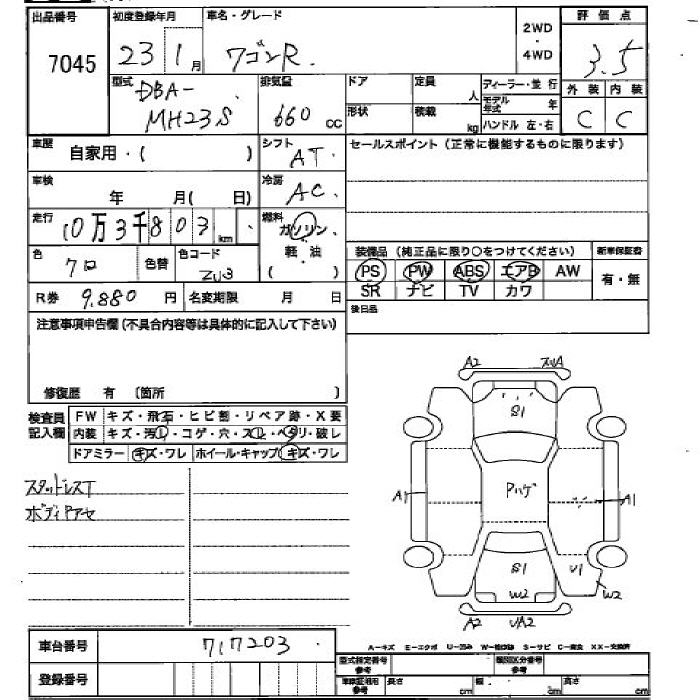 出品番号 初度登録年月 車名・グレード 2WD・4WD 評価点
7045 23 1月 ワゴンR. 3.5
型式 DBA-MH23S 排気量 660 cc ドア 定員 人 ディーラー・並行 外装 内装
形状 積載 kg モデル年式 年 ハンドル 左・右 C C
車歴 自家用・( ) シフト AT. セールスポイント(正常に機能するものに限ります)
車検 年 月( 日) 冷房 AC.
走行 10万3千803 km 燃料 ガソリン・軽油( )
色 クロ 色替 色コード ZJ3 装備品(純正品に限り○をつけてください) 新車保証書
PS PW ABS エアB AW 有・無
SR ナビ TV カワ
R券 9.880 円 名変期限 月 日 後日品
注意事項申告欄(不具合内容等は具体的に記入して下さい)
修復歴 有 〔箇所 〕
検査員記入欄 FW キズ・飛石・ヒビ割・リペア跡・X要
内装 キズ・汚レ・コゲ・穴・スレ・ヘタリ・破レ
ドアミラー キズ・ワレ ホイール・キャップ キズ・ワレ
スタッドレスT
ボディPアセ
A2 スリA
S1
A1 Pハゲ A1
S1 U1
W2 W2
A2 UA2
車台番号 717203
A-キズ E-エクボ U-凹み W-補修跡 S-サビ C-腐食 XX-交換済
登録番号 型式指定番号参考 類別区分番号参考
車検証確用参考 長さ cm 幅 cm 高さ cm